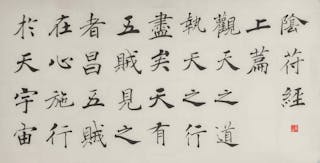 陰苻經
上篇
觀天之道
執天之行
盡矣天有
五賊見之
者昌五賊
在心施行
於天宇宙